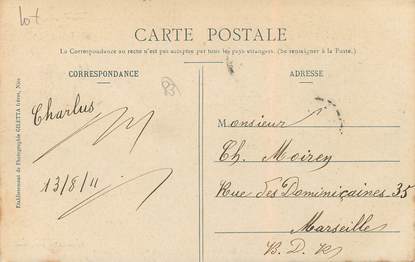 lot
CARTE POSTALE
La Correspondance au recto n'est pas acceptée par tous les pays étrangers. (Se renseigner à la Poste.)
CORRESPONDANCE
ADRESSE
Etablissement de Photographie GILETTA frères, Nice
Charlus
13/8/11
Monsieur
Ch. Moirey
Rue des Dominicaines 35
Marseille
B. D. R